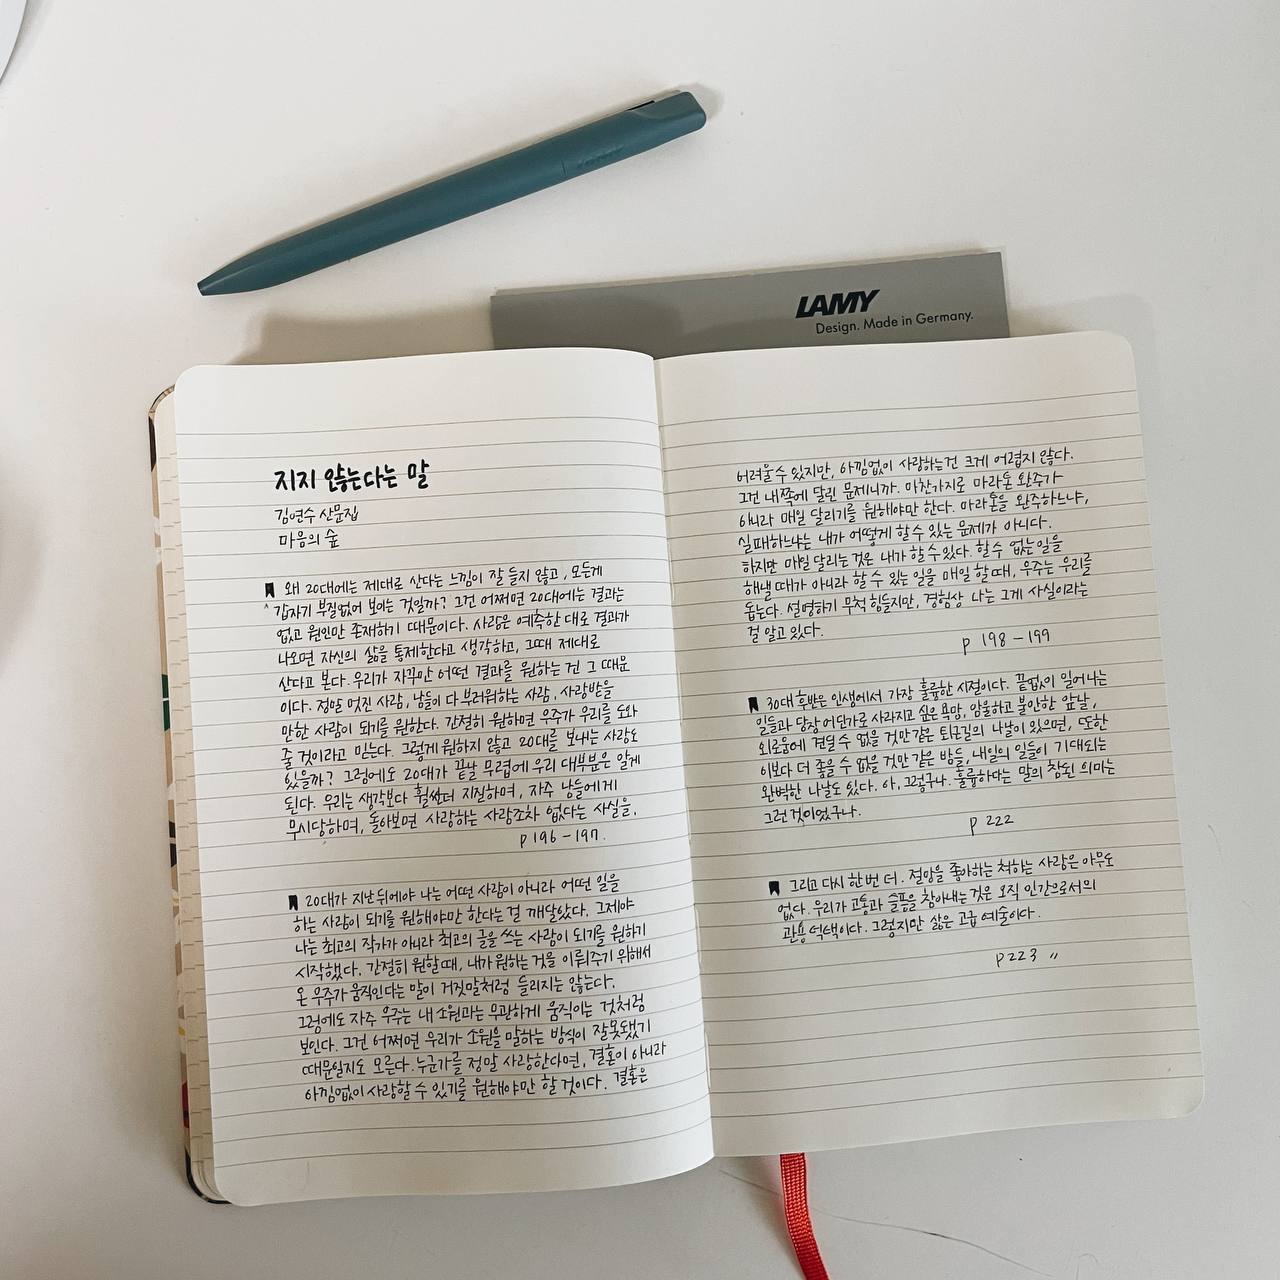 LAMY
LAMY
Design. Made in Germany.
지지 않는다는 말
김연수 산문집
마음의 숲
왜 20대에는 제대로 산다는 느낌이 잘 들지 않고, 모든게
갑자기 부질없어 보이는 것일까? 그건 어쩌면 20대에는 결과는
없고 원인만 존재하기 때문이다. 사람은 예측한 대로 결과가
나오면 자신의 삶을 통제한다고 생각하고, 그때 제대로
산다고 본다. 우리가 자꾸만 어떤 결과를 원하는 건 그 때문
이다. 정말 멋진 사람, 남들이 다 부러워하는 사람, 사랑받을
만한 사람이 되기를 원한다. 간절히 원하면 우주가 우리를 도와
줄 것이라고 믿는다. 그렇게 원하지 않고 20대를 보내는 사람도
있을까? 그럼에도 20대가 끝날 무렵에 우리 대부분은 알게
된다. 우리는 생각보다 훨씬더 지질하며, 자주 남들에게
무시당하며, 돌아보면 사랑하는 사람조차 없다는 사실을.
p 196 - 197.
20대가 지난 뒤에야 나는 어떤 사람이 아니라 어떤 일을
하는 사람이 되기를 원해야만 한다는 걸 깨달았다. 그제야
나는 최고의 작가가 아니라 최고의 글을 쓰는 사람이 되기를 원하기
시작했다. 간절히 원할 때, 내가 원하는 것을 이뤄주기 위해서
온 우주가 움직인다는 말이 거짓말처럼 들리지는 않는다.
그럼에도 자주 우주는 내 소원과는 무관하게 움직이는 것처럼
보인다. 그건 어쩌면 우리가 소원을 말하는 방식이 잘못됐기
때문일지도 모른다. 누군가를 정말 사랑한다면, 결혼이 아니라
아낌없이 사랑할 수 있기를 원해야만 할 것이다. 결혼은
어려울 수 있지만, 아낌없이 사랑하는건 크게 어렵지 않다.
그건 내쪽에 달린 문제니까. 마찬가지로 마라톤 완주가
아니라 매일 달리기를 원해야만 한다. 마라톤을 완주하느냐,
실패하느냐는 내가 어떻게 할 수 있는 문제가 아니다.
하지만 매일 달리는 것은 내가 할 수 있다. 할 수 없는 일을
해낼 때가 아니라 할 수 있는 일을 매일 할 때, 우주는 우리를
돕는다. 설명하기 무척 힘들지만, 경험상 나는 그게 사실이라는
걸 알고 있다.
p 198 - 199
30대 후반은 인생에서 가장 훌륭한 시절이다. 끝없이 일어나는
일들과 당장 어딘가로 사라지고 싶은 욕망, 암울하고 불안한 앞날,
외로움에 견딜 수 없을 것만 같은 퇴근길의 나날이 있으면, 또한
이보다 더 좋을 수 없을 것만 같은 밤들, 내일의 일들이 기대되는
완벽한 나날도 있다. 아, 그렇구나. 훌륭하다는 말의 참된 의미는
그런 것이었구나.
p 222
그리고 다시 한 번 더. 절망을 좋아하는 척하는 사람은 아무도
없다. 우리가 고통과 슬픔을 참아내는 것은 오직 인간으로서의
관용 덕택이다. 그렇지만 삶은 고급 예술이다.
p 223 〃